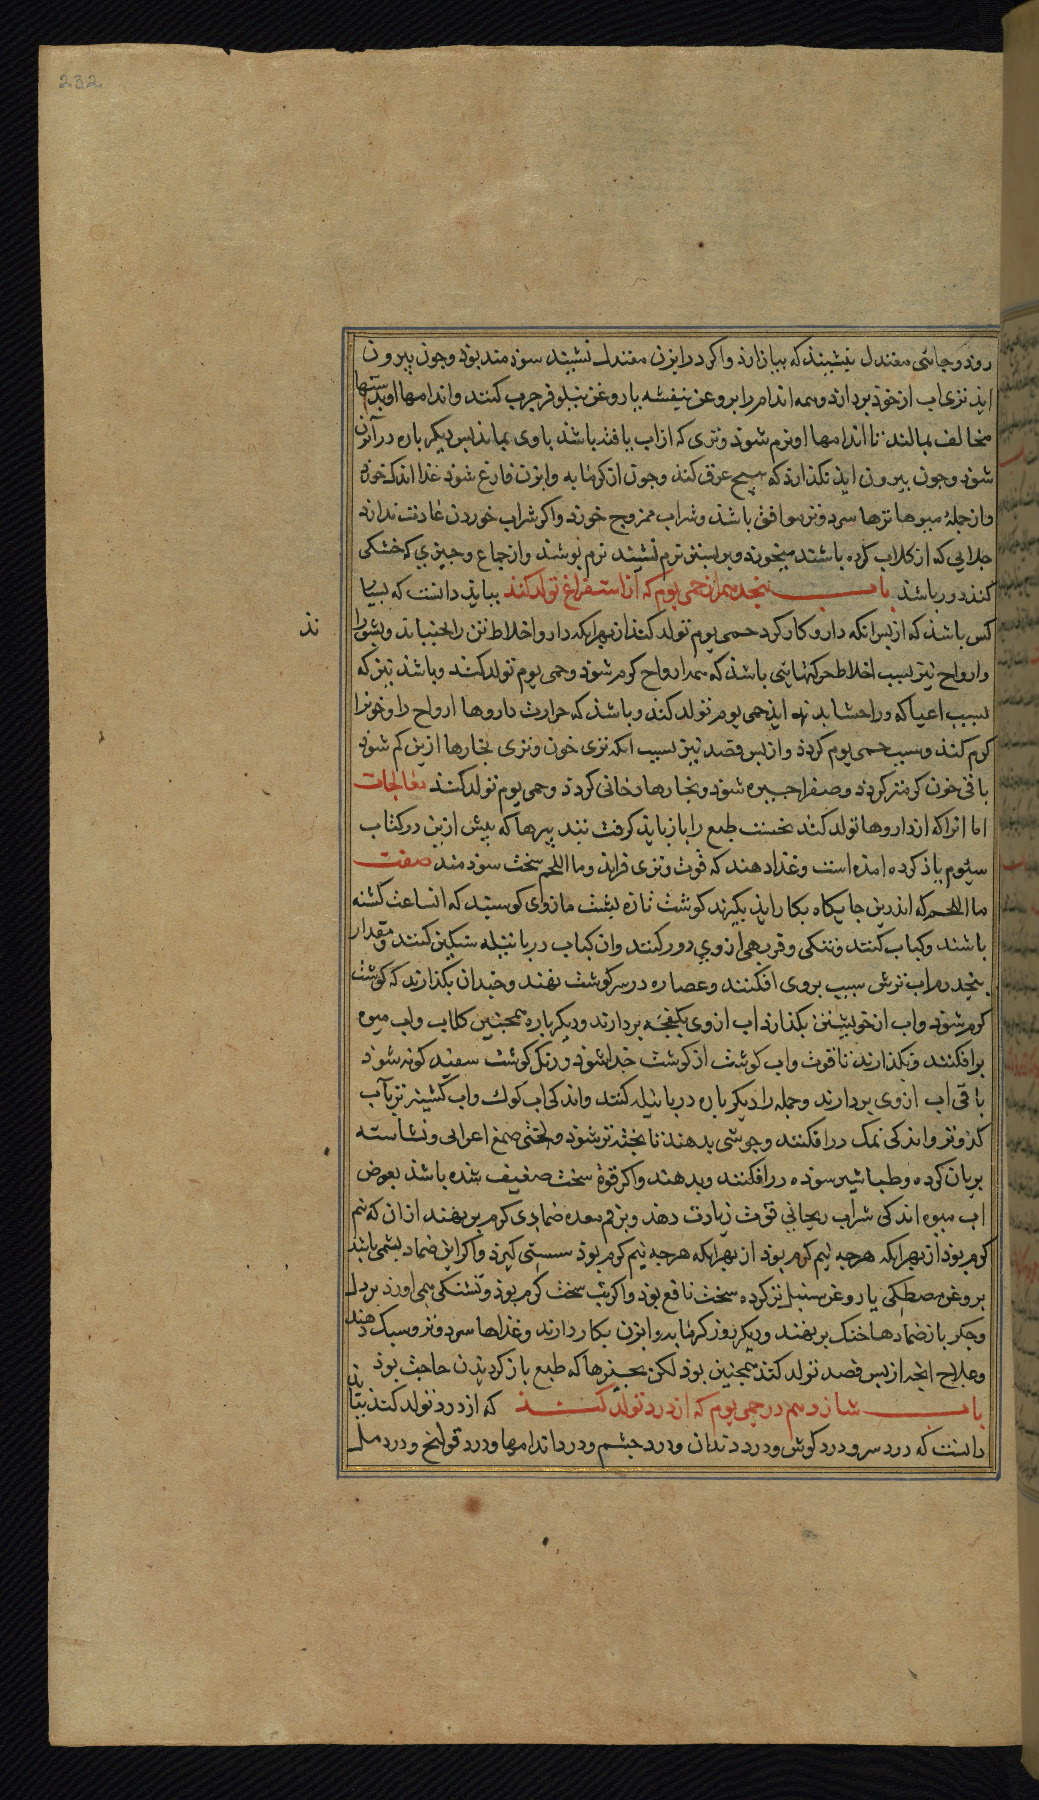 232
رود و جائی معتدل بنشیند که بیازارد و اکر در ابزن معتدل نشیند سوذمند بوذ و جون بیرون
ایذ تری اب از خوذ بردارد و همه اندام را بروغن بنفشه یا روغن نیلوفر جرب کنند و اندامها او بدستها
مخالف بمالند تا اندامها او نرم شوذ و تری که از اب یافته باشذ با وی بماند بس دیکر باره در آبزن
شوذ و جون بیرون ایذ نکذارذ که هیج عرق کند و جون از کرمابه و ابزن فارغ شوذ غذا اندک خورذ
و از جمله میوها ترها سرد و تر موافق باشذ و شراب ممزوج خورد و اکر شراب خوردن عادت ندارد
جلابی که از کلاب کرده باشند میخورد و بر بستر نرم نشیند نرم بوشد و از جماع و جیزی که خشکی
کند دور باشذ باب بنجدهم از حمی یوم که از استفراغ تولد کند ببایذ دانست که بسیار
کس باشذ که از بس انکه دارو کار کرد حمی یوم تولد کند از بهر انکه دارو اخلاط تن را بجنباند و بشوراند
و ارواح نیز بسبب اخلاط حرکتهایی باشذ که همه ارواح کرم شوذ و حمی یوم تولد کند و باشذ نیز که
بسبب اعیا که ورا حشا بدید ایذ حمی یوم تولد کند و باشذ که حرارت داروها ارواح را و خون را
کرم کند و سبب حمی یوم کردذ و از بس فصد نیز بسبب انکه تری خون و تری بخارها ازین کم شوذ
باقی خون کرمتر کردد و صفرا جیره شوذ و بخارها دخانی کردد و حمی یوم تولد کند معالجات
اما انرا که از داروها تولد کند نخست طبع را باز بایذ کرفت بتدبیرها که بیش ازین در کتاب
سیوم یاذ کرده امذه است و غذا دهند که قوت و تری فزاید و ما اللحم سخت سوذمند صفت
ما اللحم که اندرین جایکاه بکار ایذ بکیرند کوشت تازه بشت مازوی کوسبند که انساعت کشته
باشند و کباب کنند و تنکی و فربهی از وی دور کنند و ان کباب در باتیله سنکین کنند و مقدار
بنجدرم اب ترش سیب بر وی افکنند و عصاره در سر کوشت نهند و جندان بکذارند که کوشت
کرم شوذ و اب از خویشتن بکذارد اب از وی بکفجه بردارند و دیکر باره همجنین کلاب و اب میوه
برافکنند و بکذارند تا قوت و اب کوشت از کوشت جدا شوذ و رنک کوشت سفید کونه شوذ
باقی اب از وی بردارند و جمله را دیکر باره در باتیله کنند و اندکی اب کوک و اب کشنیز تر باب
کدو تر و اندکی نمک درافکنند و جوشی بدهند تا بخته تر شوذ و لختی صمغ اعرابی و نشاسته
بریان کرده و طباشیر سوده درافکنند و بدهند و اکر قوة سخت ضعیف شده باشذ بعوض
اب میوه اندکی شراب ریحانی قوت زیادت دهد و بر فم معده ضمادی کرم برنهند ازان که نیم
کرم بوذ از بهر انکه هرجه نیم کرم بوذ از بهر انکه هرجه نیم کرم بوذ سستی کیرد و اکر این ضماد بشمی باشد
بروغن مصطکی یا روغن سنبل تر کرده سخت نافع بوذ و اکر تب سخت کرم بوذ و تشنکی همی اورد بر دل
و جکر باز ضمادها خنک برنهند و دیکر روز کرمابه و ابزن بکار دارند و غذاها سرد و تر و سبک دهند
و علاج انجه از بس فصد تولد کند همجنین بوذ لکن بجیزها که طبع باز کردیدن حاجت بوذ
باب شانزدهم در حمی یوم که از درد تولد کند که از درد تولد کند ببایذ
دانست که درد سر و درد کوش و درد دندان و درد جشم و درد اندامها و درد قولنج و درد دمل
ند